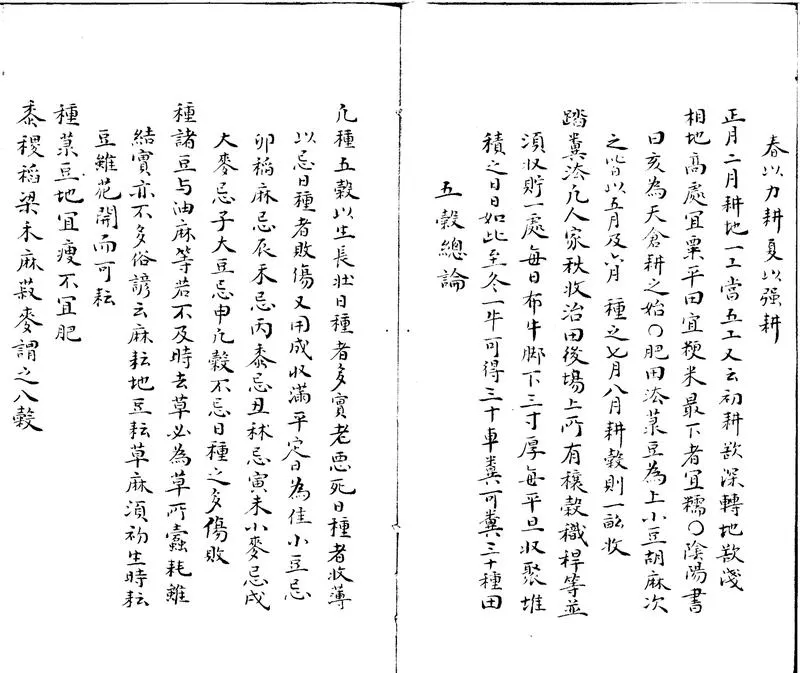 春以力耕夏以强耕
正月二月耕地一工當五工又云初耕欲深轉地欲淺
相地高處宜粟平田宜粳米最下者宜糯〇陰陽書
曰亥為天倉耕之始〇肥田法菉豆為上小豆胡麻次
之皆以五月及六月 種之七月八月耕穀則一畝收
踏糞法凡人家秋收治田後場上所有穰穀穖稈等並
須收貯一處每日布牛脚下三寸厚每平旦收聚堆
積之日日如此至冬一牛可得三十車糞可糞三十種田
五穀總論
凡種五穀以生長壯日種者多實老惡死日種者收薄
以忌日種者敗傷又用成收滿平定日為佳小豆忌
卯稻麻忌辰禾忌丙黍忌丑秫忌寅未小麥忌戌
大麥忌子大豆忌申凡穀不忌日種之多傷敗
種諸豆与油麻等若不及時去草必為草所蠹耗雖
結實亦不多俗諺云麻耘地豆耘草麻須初生時耘
豆雖花開而可耘
種菉豆地宜瘦不宜肥
黍稷稻梁禾麻菽麥謂之八穀